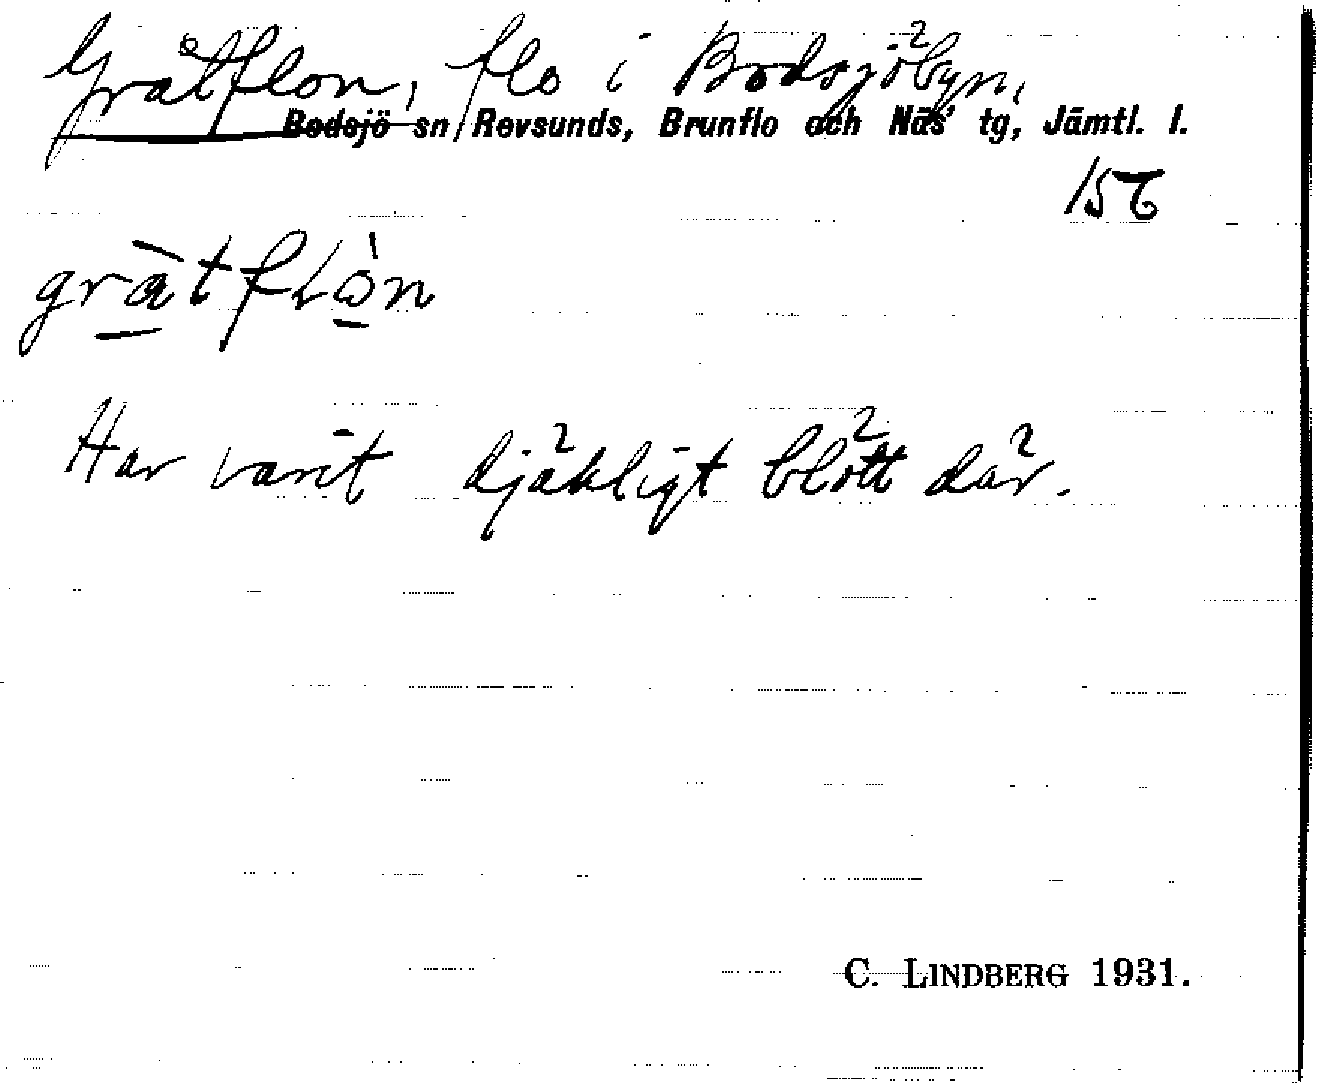 Gråtflon, flo i Bodsjöbyn,
Bodsjö sn, Revsunds, Brunflo och Näs tg, Jämtl. l.
156
gràtflòn
Har varit djäkligt blött där.
C. LINDBERG 1931.